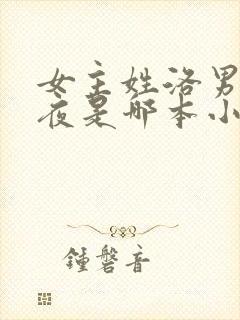 女主姓洛男
夜是哪本小
鍾磬音